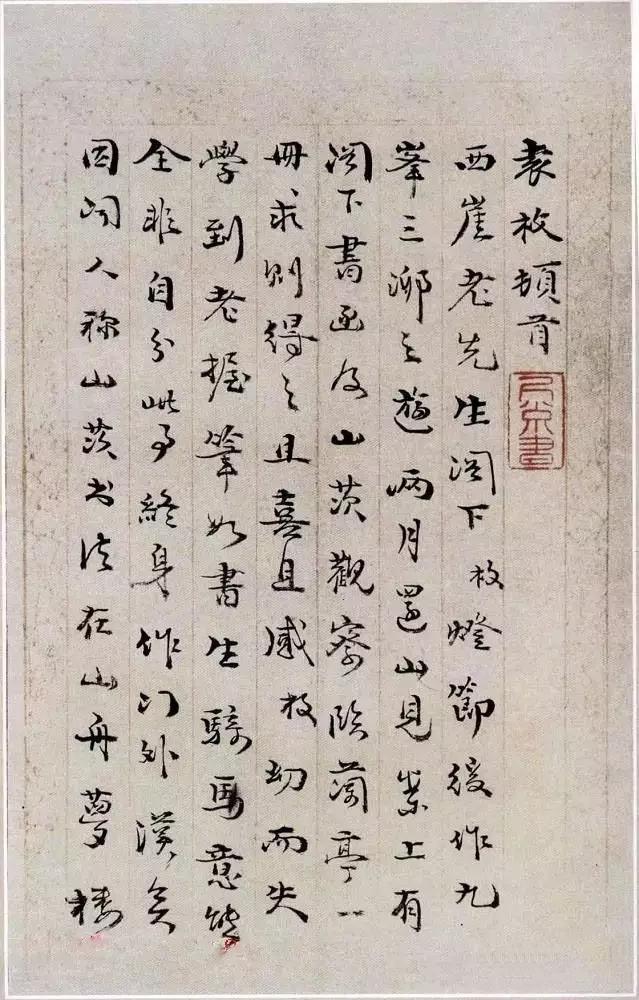 袁枚頓首
西崖老先生閣下枚燈節後作九
峯三泖之遊兩月還山見案上有
閣下書函及山茨觀察臨蘭亭一
冊求則得之且喜且感枚幼而失
學到老握筆如書生騎馬意態
全非自分此事終身作门外漢矣
因问人称山茨书法在山舟夢樓